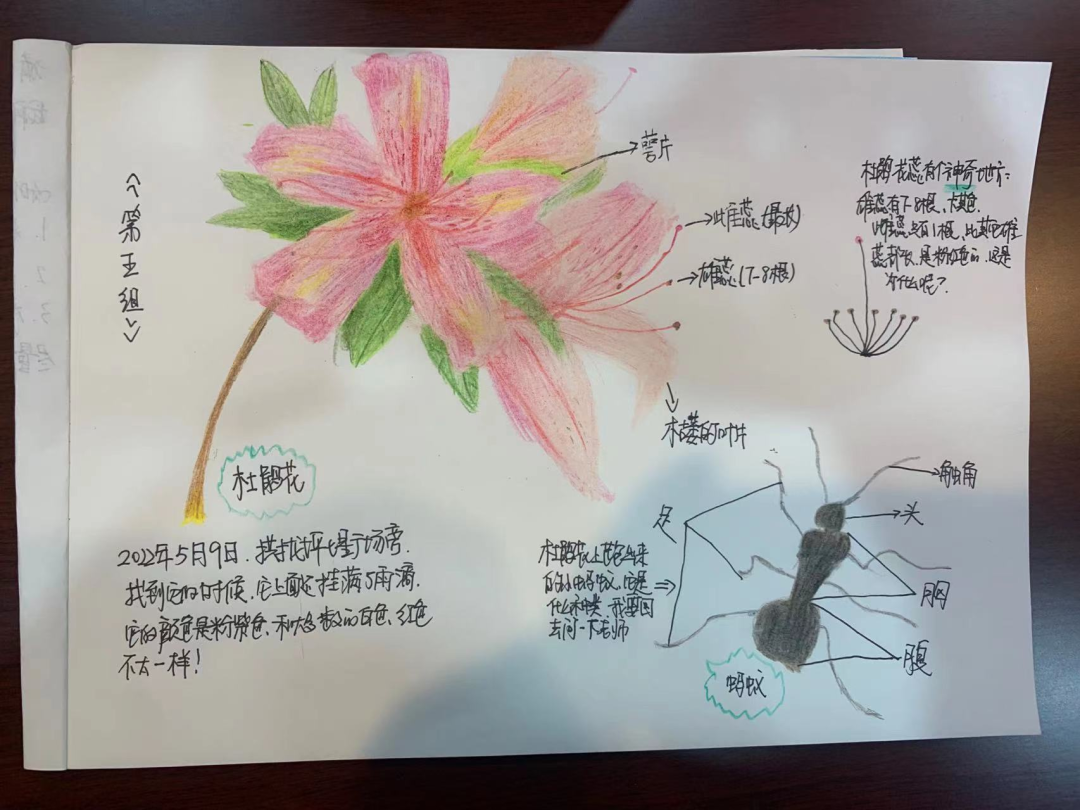 第五组
萼片
雌蕊(最长)
雄蕊(7-8根)
杜鹃花蕊有个神奇地方:
雄蕊有7-8根,
雌蕊只有1根,比其它雄
蕊都长,是粉红色的,这是
为什么呢?
杜鹃花
2022年5月9日,
广场旁
找到它的时候,它上面还挂满了雨滴.
它的颜色是粉紫色,和大多数的白色、红色
不太一样!
杜鹃花上爬出来
的小蚂蚁,它是
什么种类,我要回
去问一下老师
足
触角
头
胸
腹
蚂蚁